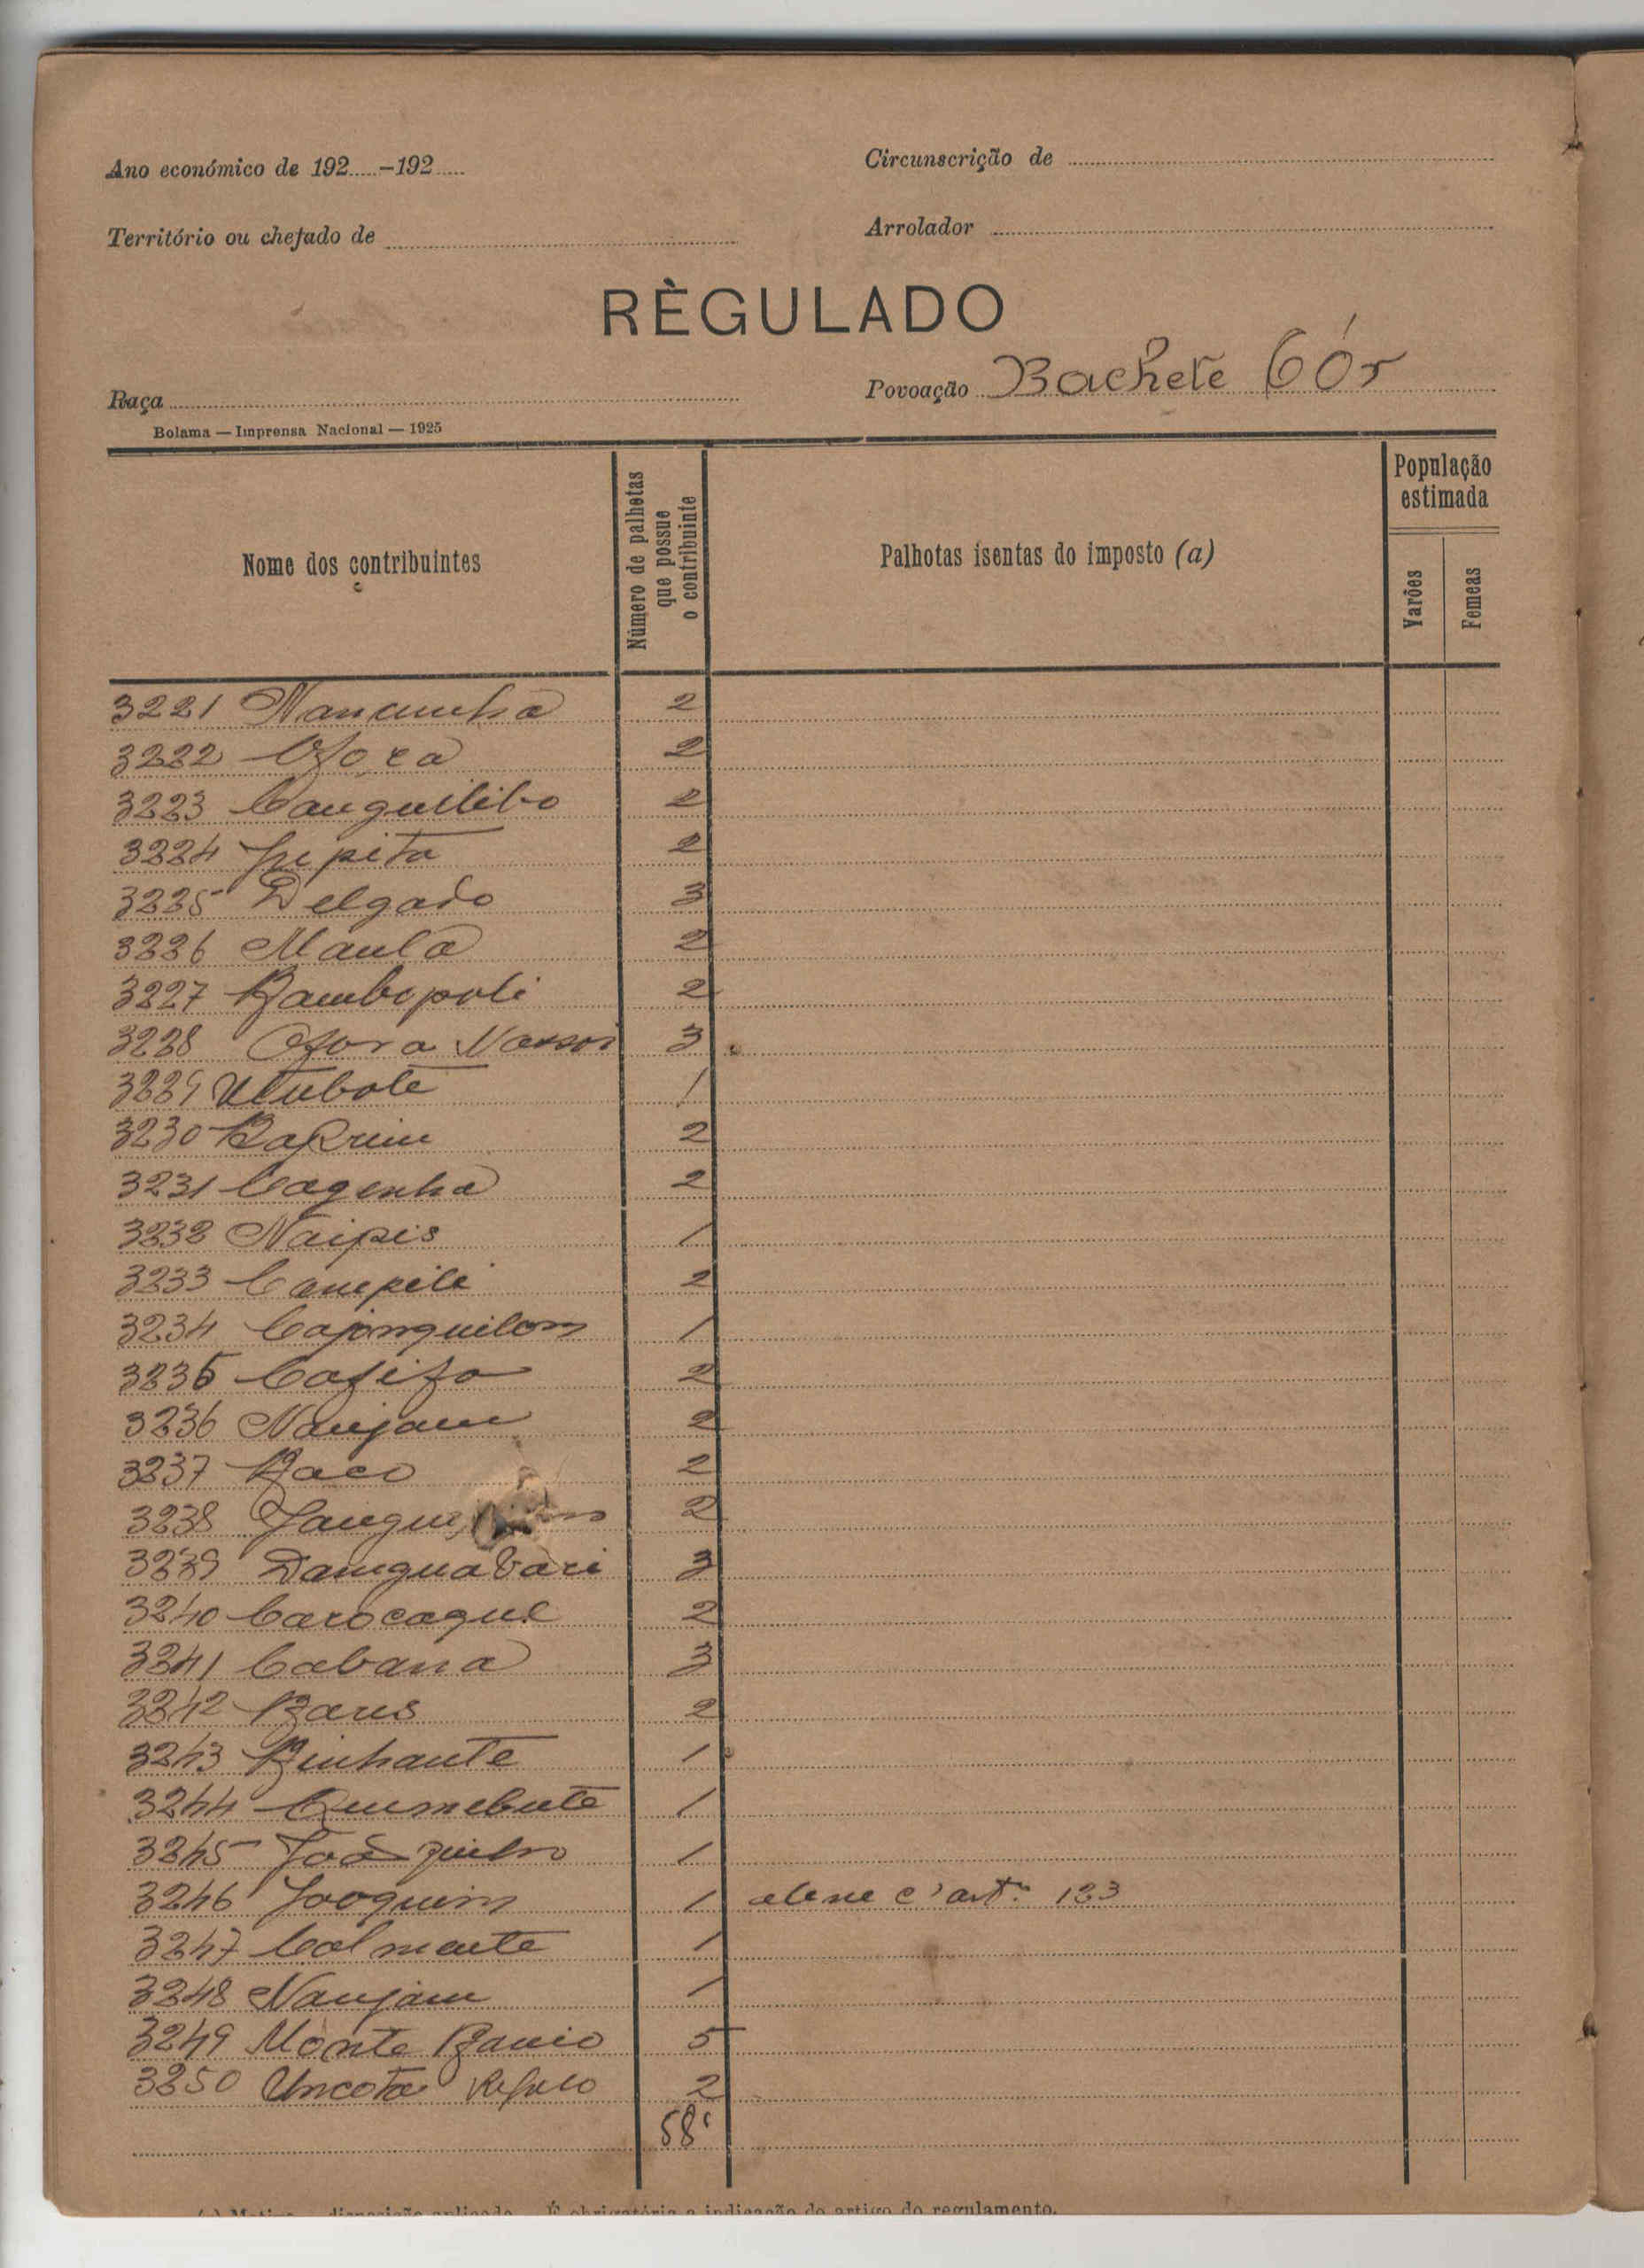 Ano económico de 192.....-192.....
Circunscrição de
Território ou chefado de
Arrolador
RÈGULADO
Raça
Povoação Bachete Cór
Bolama — Imprensa Nacional — 1925
Nome dos contribuintes
Número de palhotas que possue o contribuinte
Palhotas isentas do imposto (a)
População estimada
Varões
Femeas
3221 Nanamha 2
3222 2
3223 Canguilibo 2
3224 Jupita 2
3225 Delgado 3
3226 Maula 2
3227 Bambopoli 2
3228 3
3229 Utubote 1
3230 2
3231 Cagenha 2
3232 Naipis 1
3233 Campili 2
3234 Cajonquilom 1
3235 Cafifo 2
3236 Naujam 2
3237 Baco 2
3238 2
3239 Damguabari 3
3240 Carocaque 2
3241 Cabana 3
3242 Baus 2
3243 Binhante 1
3244 Quumebute 1
3245 1
3246 Jooquim 1 c' artº 133
3247 Calmante 1
3248 Naujam 1
3249 Monte Bancio 5
3250 Uncota 2
58
disposição aplicada. É obrigatória a indicação do artigo do regulamento.